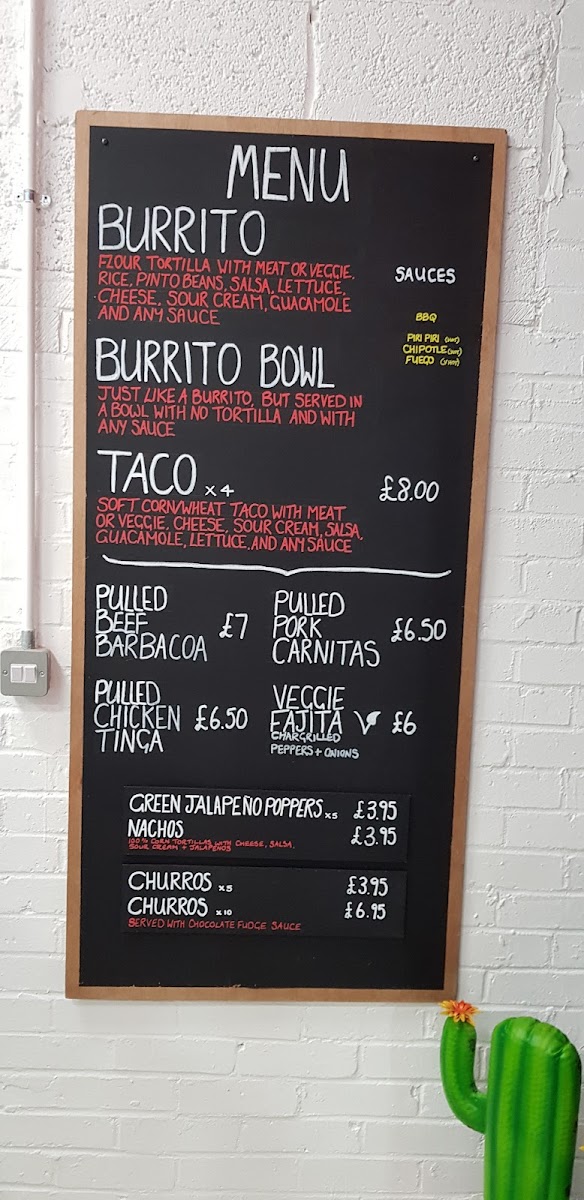 MENU
BURRITO
FLOUR TORTILLA WITH MEAT OR VEGGIE.
RICE, PINTO BEANS, SALSA, LETTUCE,
CHEESE, SOUR CREAM, GUACAMOLE
AND ANY SAUCE
SAUCES
BBQ
PIRI PIRI (HOT)
CHIPOTLE (HOT)
FUEGO
BURRITO BOWL
JUST LIKE A BURRITO, BUT SERVED IN
A BOWL WITH NO TORTILLA AND WITH
ANY SAUCE
TACO x4 £8.00
SOFT CORN/WHEAT TACO WITH MEAT
OR VEGGIE, CHEESE, SOUR CREAM, SALSA,
GUACAMOLE, LETTUCE, AND ANY SAUCE
PULLED
BEEF £7
BARBACOA
PULLED
PORK £6.50
CARNITAS
PULLED
CHICKEN £6.50
TINGA
VEGGIE
FAJITA V £6
CHARGRILLED
PEPPERS + ONIONS
GREEN JALAPEÑO POPPERS x5 £3.95
NACHOS £3.95
100% CORN TORTILLAS WITH CHEESE, SALSA,
SOUR CREAM + JALAPENOS
CHURROS x5 £3.95
CHURROS x10 £6.95
SERVED WITH CHOCOLATE FUDGE SAUCE